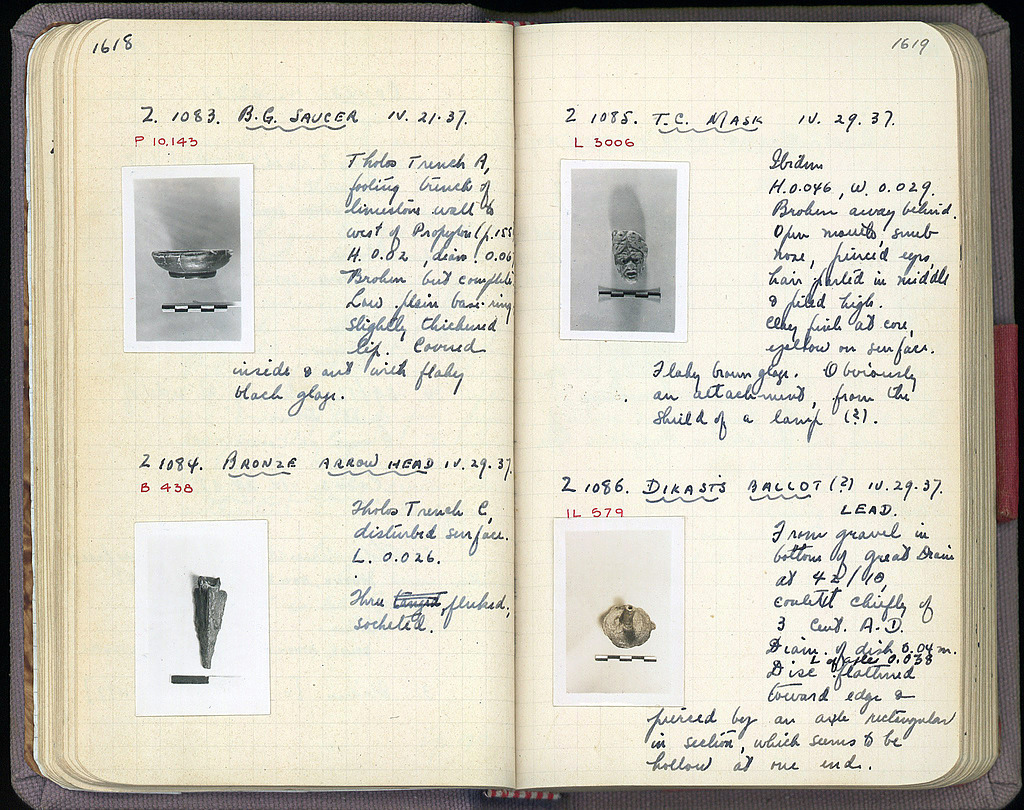 1618
Z 1083. B.G. SAUCER IV. 21.37.
P 10,143
Tholos Trench A,
footing trench of
limestone wall to
west of Propylon (p.155
H. 0.02, diam. 0.06
Broken but complete.
Low plain base-ring,
slightly thickened
lip. Covered
inside & out with flaky
black glaze.
Z 1084. BRONZE ARROW HEAD IV.29.37.
B 438
Tholos Trench C,
disturbed surface.
L. 0.026.
Three tanged, fluked,
socketed.
1619
Z 1085. T.C. MASK IV. 29.37.
L 3006
Ibidem
H.0.046, W. 0.029.
Broken away behind.
Open mouth, snub
nose, pierced eyes
hair parted in middle
& piled high.
Clay pink at core,
yellow on surface.
Flaky brown glaze. Obviously
an attachment, from the
shield of a lamp (?).
Z 1086. DIKAST'S BALLOT (?) IV.29.37.
IL 579
LEAD.
From gravel in
bottom of great Drain
at 42/18,
chiefly of
3 Cent. A.D.
Diam. of disk 0.04 m.
L of axle 0.038
Disc flattened
toward edge &
pierced by an axle rectangular
in section, which seems to be
hollow at one end.